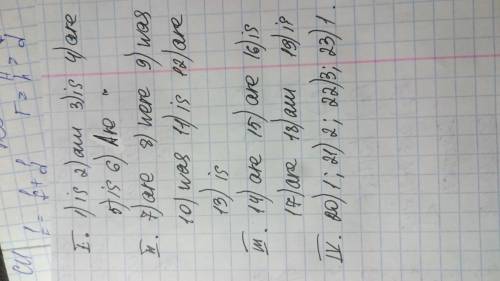 I. 1) is 2) am 3) is 4) are
5) is 6) Are
II. 7) are 8) were 9) was
10) was 11) is 12) are
13) is
III. 14) are 15) are 16) is
17) are 18) am 19) is
IV. 20) 1; 21) 2; 22) 3; 23) 1.